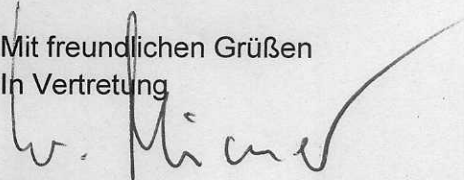 Mit freundlichen Grüßen
In Vertretung